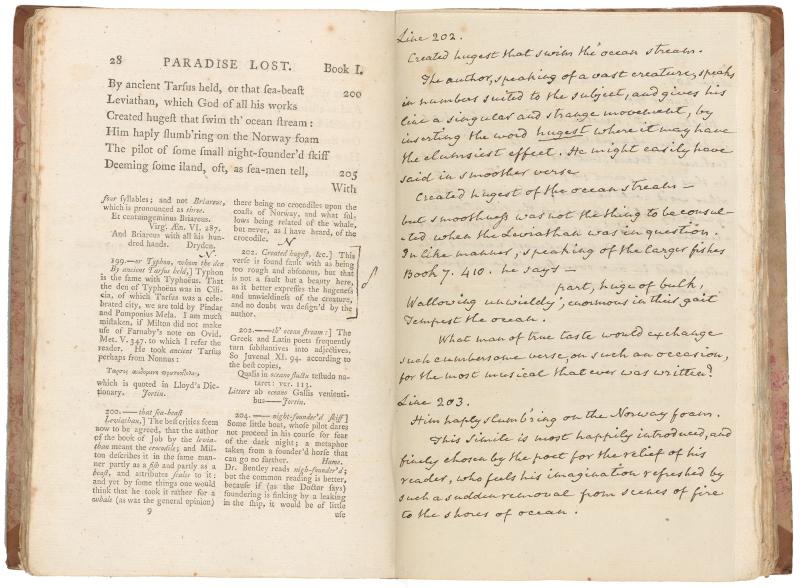 28 PARADISE LOST. Book I.
By ancient Tarſus held, or that ſea-beaſt 200
Leviathan, which God of all his works
Created hugeſt that ſwim th' ocean ſtream:
Him haply ſlumb'ring on the Norway foam
The pilot of ſome ſmall night-founder'd ſkiff
Deeming ſome iland, oft, as ſea-men tell, 205
With
four ſyllables; and not Briareus,
which is pronounced as three.
Et centumgeminus Briareus.
Virg. Æn. VI. 287.
And Briareus with all his hun-
dred hands. Dryden.
N
199.—or Typhon, whom the den
By ancient Tarſus held,] Typhon
is the ſame with Typhoëus. That
the den of Typhoëus was in Cili-
cia, of which Tarſus was a cele-
brated city, we are told by Pindar
and Pomponius Mela. I am much
miſtaken, if Milton did not make
uſe of Farnaby's note on Ovid.
Met. V. 347. to which I refer the
reader. He took ancient Tarſus
perhaps from Nonnus:
which is quoted in Lloyd's Dic-
tionary. Jortin.
200. —— that ſea-beaſt
Leviathan,] The beſt critics ſeem
now to be agreed, that the author
of the book of Job by the levia-
than meant the crocodile; and Mil-
ton deſcribes it in the ſame man-
ner partly as a fiſh and partly as a
beaſt, and attributes ſcales to it:
and yet by ſome things one would
think that he took it rather for a
whale (as was the general opinion)
9
there being no crocodiles upon the
coaſts of Norway, and what fol-
lows being related of the whale,
but never, as I have heard, of the
crocodile.
N
202. Created hugeſt, &c.] This
verſe is found fault with as being
too rough and abſonous, but that
is not a fault but a beauty here,
as it better expreſſes the hugeneſs
and unwieldineſs of the creature,
and no doubt was deſign'd by the
author.
202.——th' ocean ſtream:] The
Greek and Latin poets frequently
turn ſubſtantives into adjectives.
So Juvenal XI. 94. according to
the beſt copies,
Qualis in oceano fluctu teſtudo na-
taret: ver. 113.
Littore ab oceano Gallis venienti-
bus—Jortin.
204. —— night-founder'd ſkiff]
Some little boat, whoſe pilot dares
not proceed in his courſe for fear
of the dark night; a metaphor
taken from a founder'd horſe that
can go no farther. Hume.
Dr. Bentley reads nigh-founder'd;
but the common reading is better,
becauſe if (as the Doctor ſays)
foundering is ſinking by a leaking
in the ſhip, it would be of little
uſe
Line 202.
Created hugest that swim the ocean stream.
The author, speaking of a vast creature, speaks
in numbers suited to the subject, and gives his
line a singular and strange movement, by
inserting the word hugest where it may have
the clumsiest effect. He might easily have
said in smoother verse
Created hugest of the ocean stream —
but smoothness was not the thing to be consul-
-ted when the Leviathan was in question.
In like manner, speaking of the larger fishes
Book 7. 410. he says —
part, huge of bulk,
Wallowing unwieldy, enormous in their gait
Tempest the ocean.
What man of true taste would exchange
such cumbersome verse, on such an occasion,
for the most musical that ever was written?
Line 203.
Him haply slumb'ring on the Norway foam.
This Simile is most happily introduced, and
finely chosen by the poet for the relief of his
reader, who feels his imagination refreshed by
such a sudden removal from scenes of fire
to the shores of ocean.